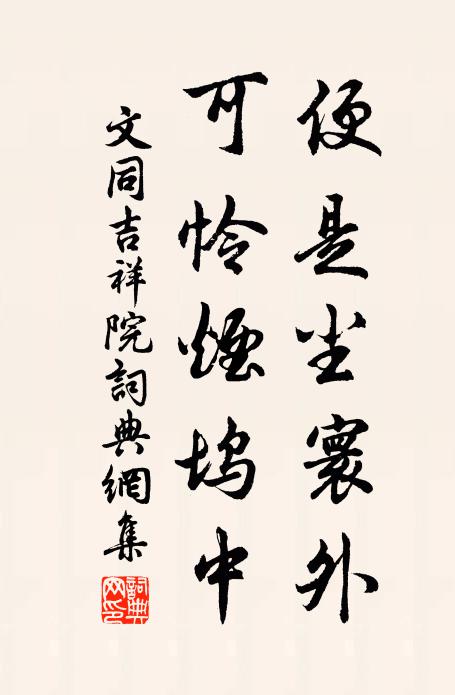 便是尘寰外
可怜烟坞中
文同吉祥院詞典網集
詞典网印